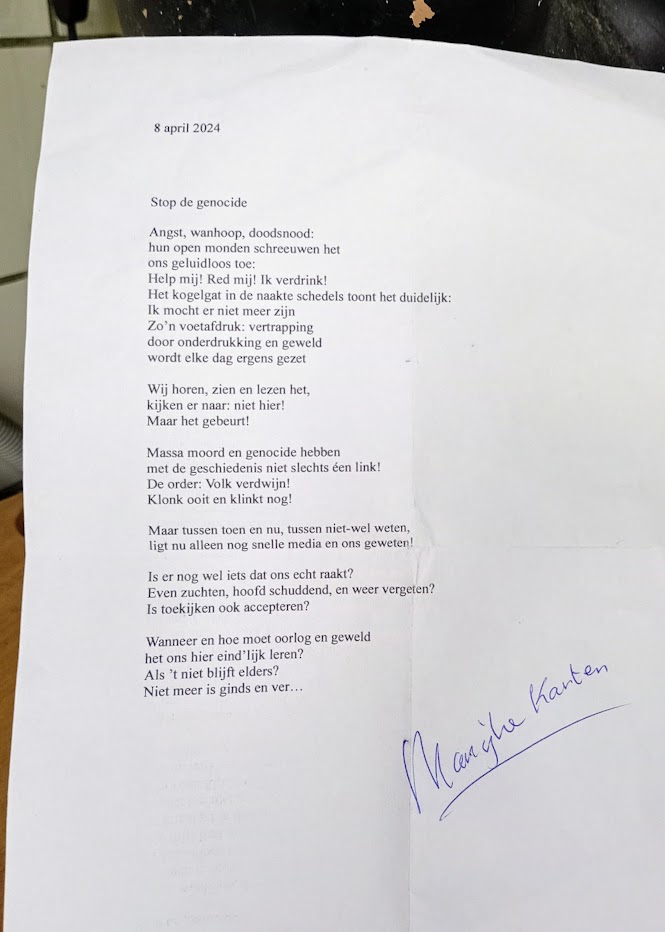 8 april 2024
Stop de genocide
Angst, wanhoop, doodsnood:
hun open monden schreeuwen het
ons geluidloos toe:
Help mij! Red mij! Ik verdrink!
Het kogelgat in de naakte schedels toont het duidelijk:
Ik mocht er niet meer zijn
Zo’n voetafdruk: vertrapping
door onderdrukking en geweld
wordt elke dag ergens gezet
Wij horen, zien en lezen het,
kijken er naar: niet hier!
Maar het gebeurt!
Massa moord en genocide hebben
met de geschiedenis niet slechts éen link!
De order: Volk verdwijn!
Klonk ooit en klinkt nog!
Maar tussen toen en nu, tussen niet-wel weten,
ligt nu alleen nog snelle media en ons geweten!
Is er nog wel iets dat ons echt raakt?
Even zuchten, hoofd schuddend, en weer vergeten?
Is toekijken ook accepteren?
Wanneer en hoe moet oorlog en geweld
het ons hier eind’lijk leren?
Als ’t niet blijft elders?
Niet meer is ginds en ver…
Marijke Karten